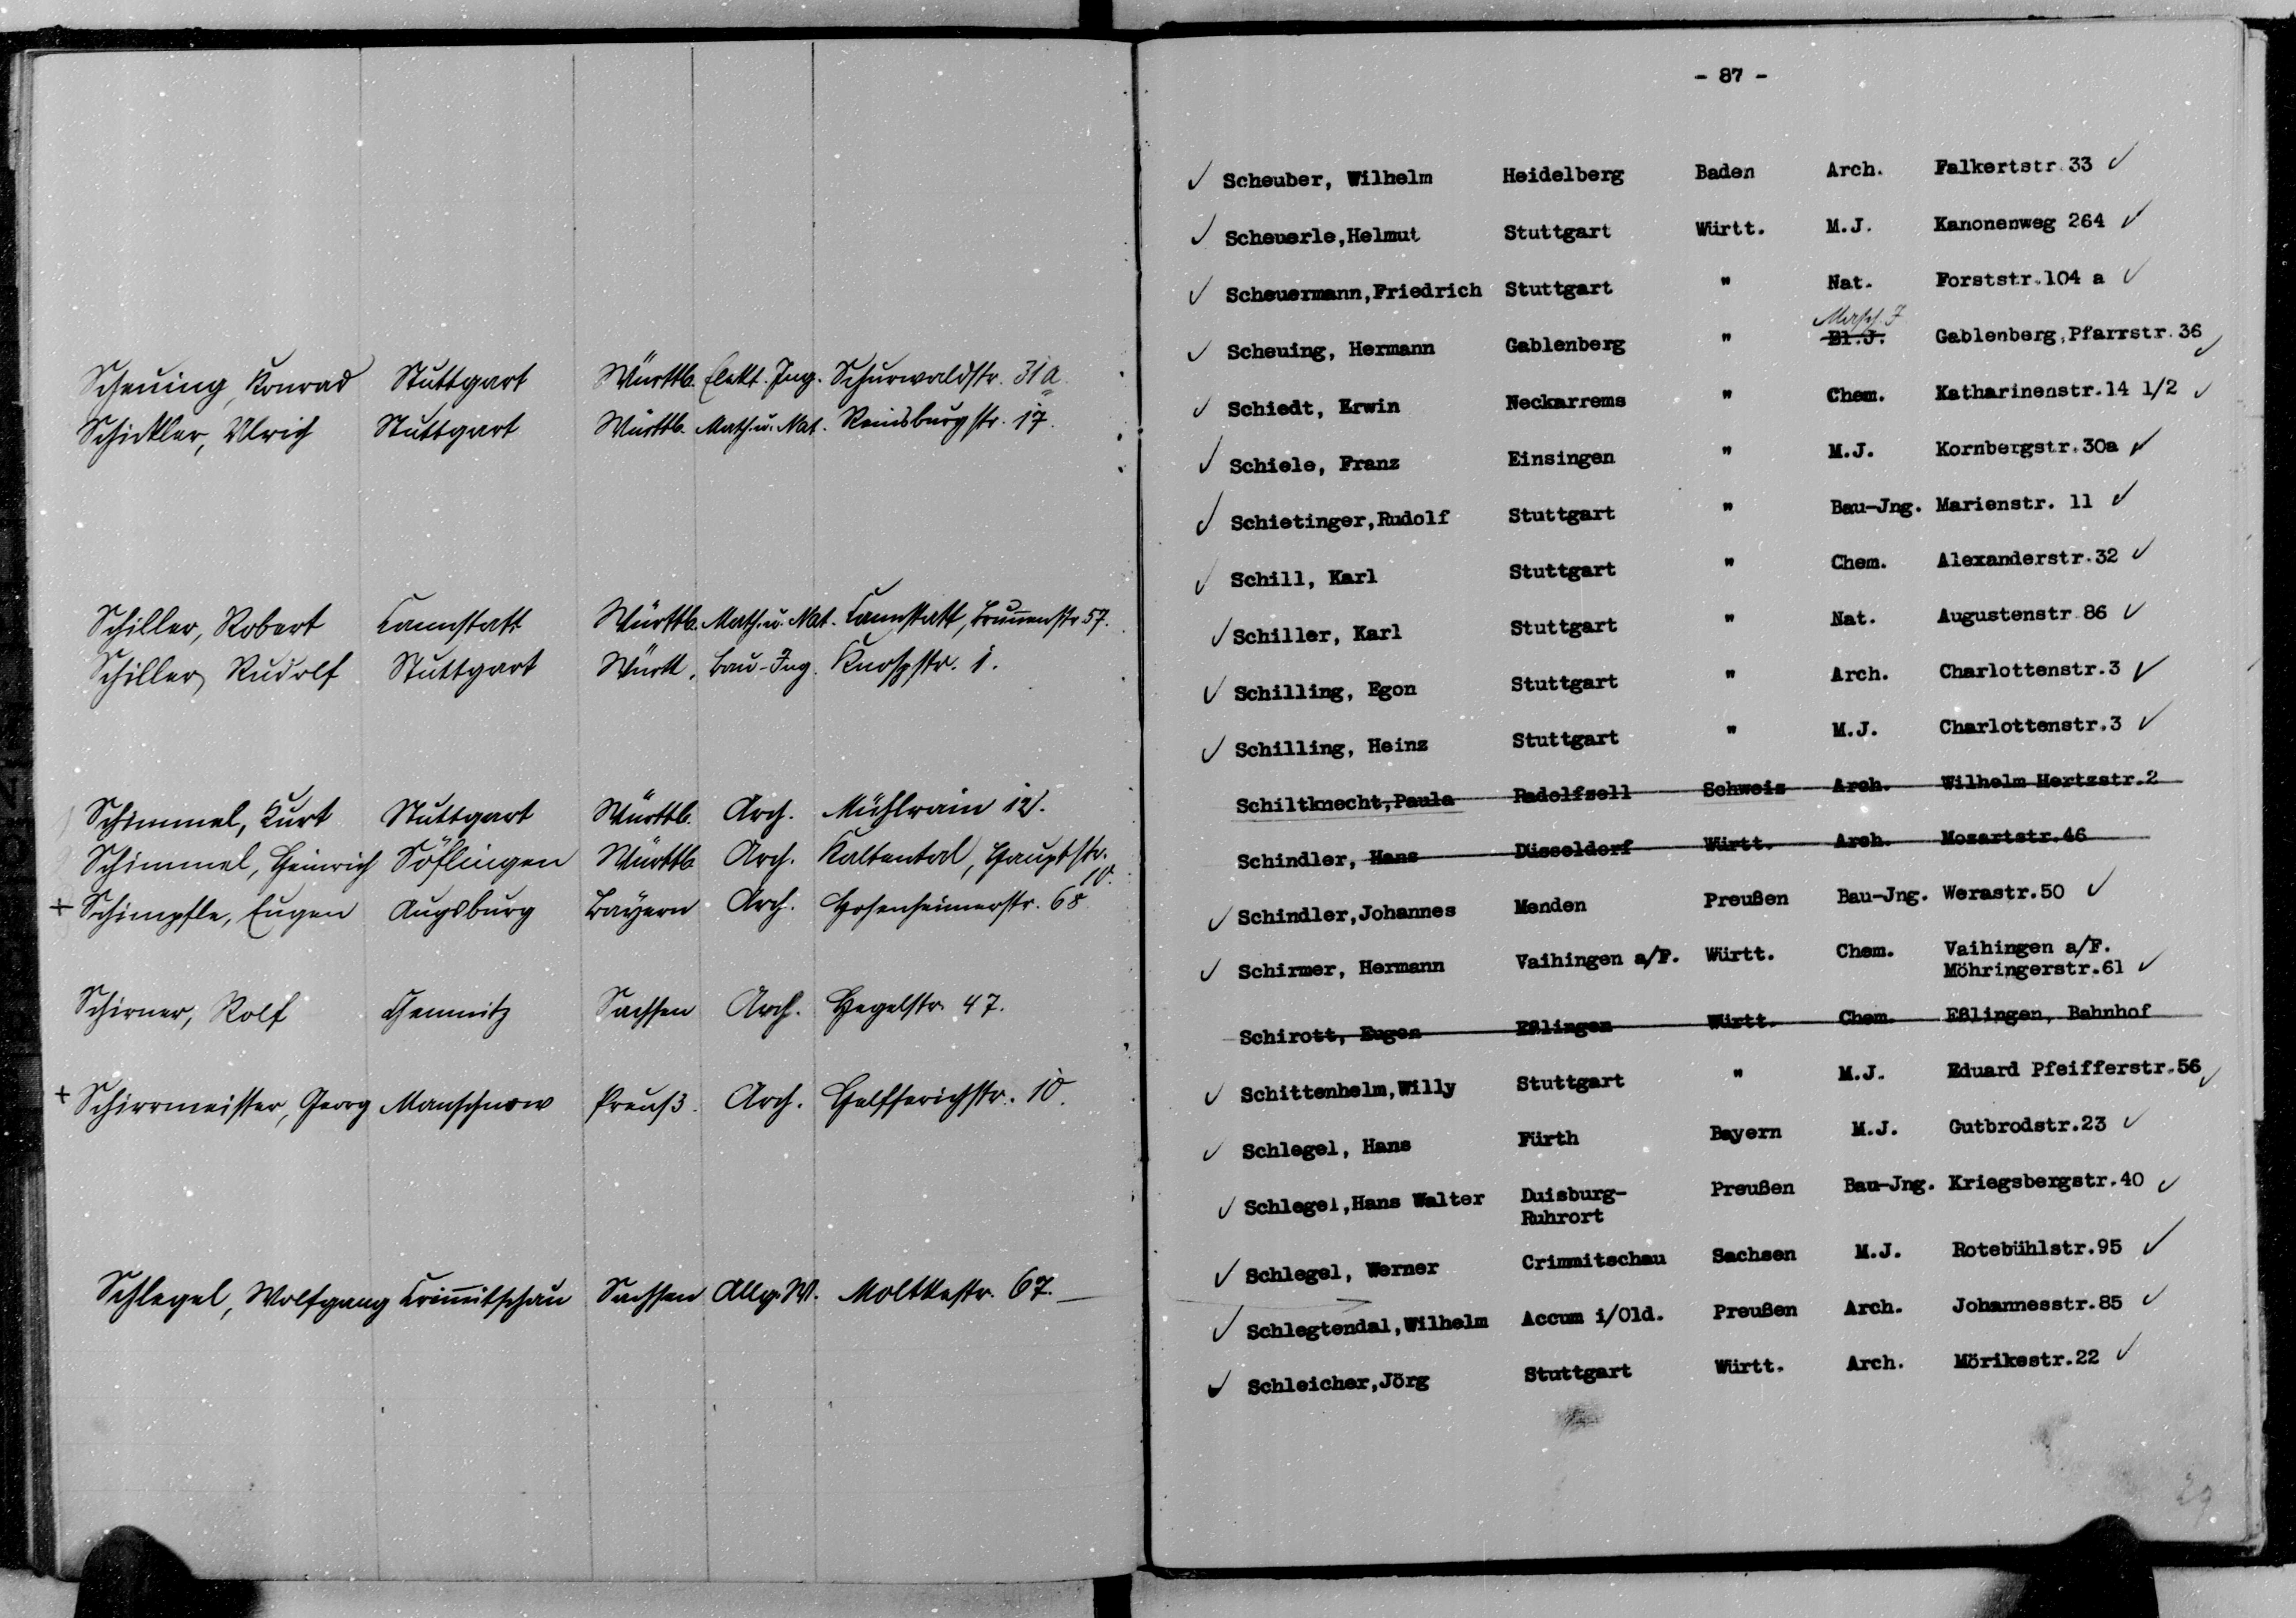 Scheuing, Konrad Stuttgart Württb. Elekt. Ing. Schurwaldstr. 31a.
Schickler, Ulrich Stuttgart Württb. Math. u. Nat. Reinsburgstr. 17.
Schiller, Robert Cannstatt Württb. Math. u. Nat. Cannstatt, Brun̄enstr 57.
Schiller, Rudolf Stuttgart Württ. Bau-Ing. Knospstr. 1.
Schimmel, Kurt Stuttgart Württb. Arch. Mühlrain 12.
Schimmel, Heinrich Söflingen Württb. Arch. Kaltental, Hauptstr. 10.
+ Schimpfle, Eugen Augsburg Bayern Arch. Hohenheimerstr. 68
Schirner, Rolf Chemnitz Sachsen Arch. Hegelstr. 47.
+ Schirrmeister, Georg Manschnow Preuß. Arch. Helfferichstr. 10.
Schlegel, Wolfgang Crim̄itschau Sachsen Allg. W. Moltkestr. 67.
- 87 -
✓ Scheuber, Wilhelm Heidelberg Baden Arch. Falkertstr.33 ✓
✓ Scheuerle,Helmut Stuttgart Württ. M.J. Kanonenweg 264 ✓
✓ Scheuermann,Friedrich Stuttgart " Nat. Forststr.104 a ✓
Masch. I
✓ Scheuing, Hermann Gablenberg " El.J. Gablenberg,Pfarrstr.36 ✓
✓ Schiedt, Erwin Neckarrems " Chem. Katharinenstr.14 1/2 ✓
✓ Schiele, Franz Einsingen " M.J. Kornbergstr.30a ✓
✓ Schietinger,Rudolf Stuttgart " Bau-Jng. Marienstr. 11 ✓
✓ Schill, Karl Stuttgart " Chem. Alexanderstr.32 ✓
✓ Schiller, Karl Stuttgart " Nat. Augustenstr 86 ✓
✓ Schilling, Egon Stuttgart " Arch. Charlottenstr.3 ✓
✓ Schilling, Heinz Stuttgart " M.J. Charlottenstr.3 ✓
Schiltknecht,Paula Radolfzell Schweiz Arch. Wilhelm Hertzstr.2
Schindler, Hans Düsseldorf Württ. Arch. Mozartstr.46
✓ Schindler,Johannes Menden Preußen Bau-Jng. Werastr.50 ✓
✓ Schirmer, Hermann Vaihingen a/F. Württ. Chem. Vaihingen a/F.
Möhringerstr.61 ✓
Schirott, Eugen Eßlingen Württ. Chem. Eßlingen, Bahnhof
✓ Schittenhelm,Willy Stuttgart " M.J. Eduard Pfeifferstr.56 ✓
✓ Schlegel, Hans Fürth Bayern M.J. Gutbrodstr.23 ✓
✓ Schlegel,Hans Walter Duisburg- Preußen Bau-Jng. Kriegsbergstr.40 ✓
Ruhrort
✓ Schlegel, Werner Crimmitschau Sachsen M.J. Rotebühlstr.95 ✓
✓ Schlegtendal,Wilhelm Accum i/Old. Preußen Arch. Johannesstr.85 ✓
✓ Schleicher,Jörg Stuttgart Württ. Arch. Mörikestr.22 ✓
29